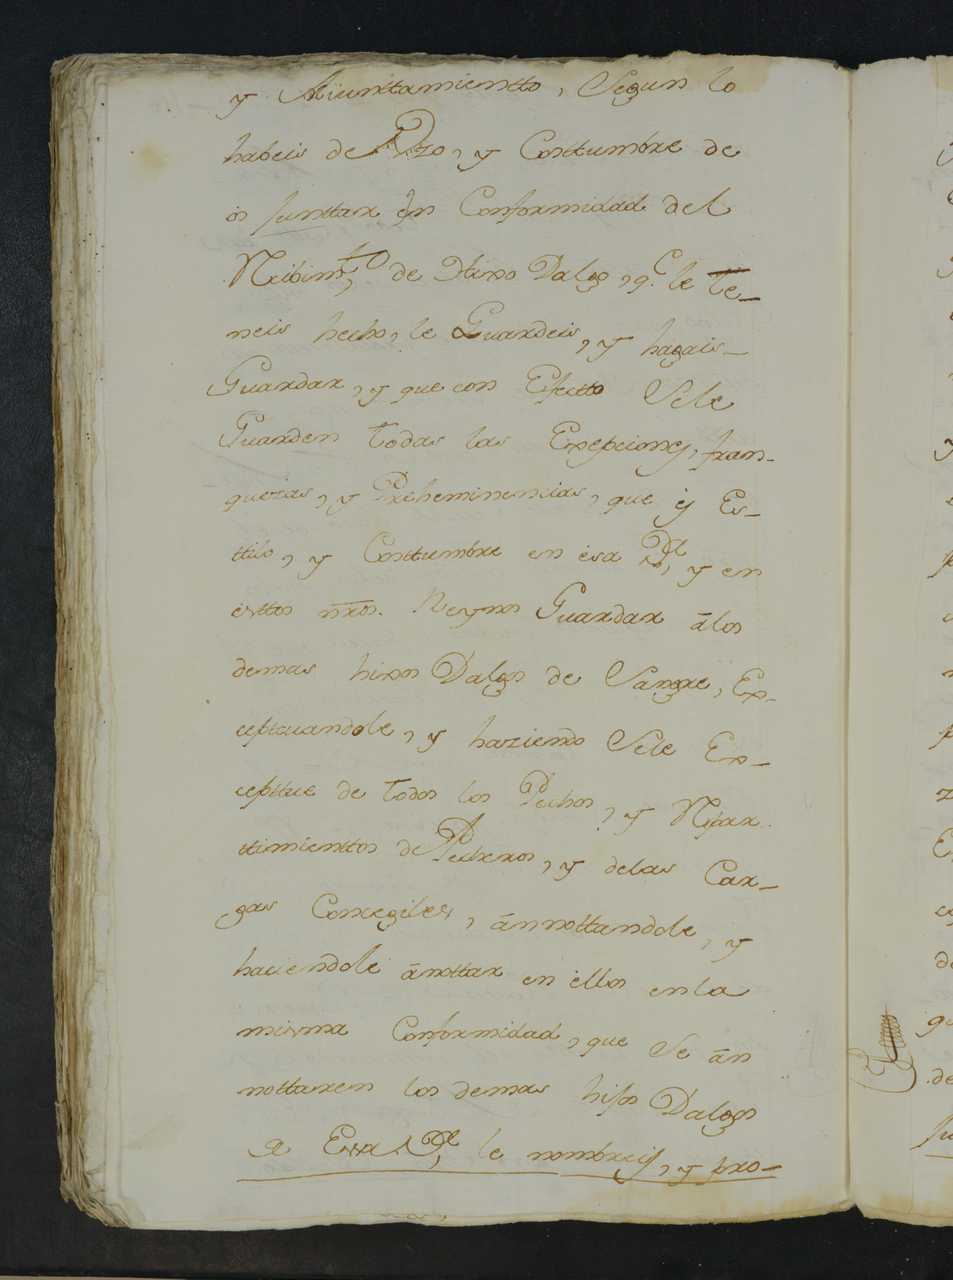 y Aiuntamientto, Segun lo
habeis de Vzo, y Costtumbre de
os Junttar en Conformidad del
Ribimto, de Hixo Dalgo, q.e le te-
neis hecho, le Guardeis, y hagais-
Guardar, y que con Efectto Sele
Guarden todas las Exepciones, fran-
quezas, y Preheminencias, que es Es-
ttilo, y Costtumbre en esa Vª, y en
esttos nros. Reynos Guardar â los
demas hixos Dalgo de Sangre, Ex-
ceptuandole, y haziendo Sele Ex-
cepttue de todos los Pechos, y Repar
ttimienttos de Pecheros, y delas Car-
gas Concegiles, ânnottandole, y
haciendole ânottar en ellos en la
misma Conformidad, que Se ân
nottaren los demas hijos Dalgo
de Essa Vª, le nombreis, y pro-